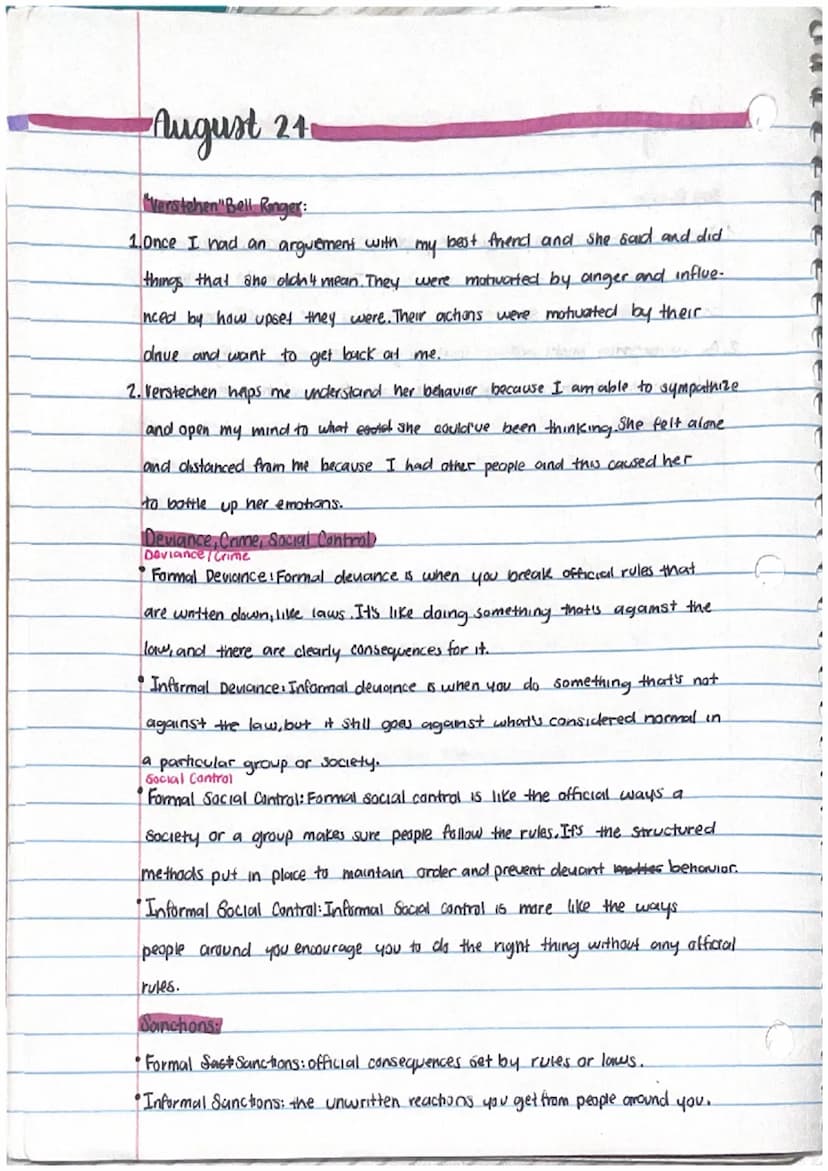 August 24
"Verstehen" Bell Ringer:
1. Once I had an arguement with my best friend and she said and did
things that she didn't mean. They were motivated by anger and influe-
nced by how upset they were. Their actions were motivated by their
drive and want to get back at me.
2. Verstechen helps me understand her behavior because I am able to sympathize
and open my mind to what she could've been thinking. She felt alone
and distanced from me because I had other people and this caused her
to bottle up her emotions.
Deviance, Crime, Social Control
Deviance/Crime
• Formal Deviance: Formal deviance is when you break official rules that
are written down, like laws. It's like doing something that's against the
law, and there are clearly consequences for it.
• Informal Deviance: Informal deviance is when you do something that's not
against the law, but it still goes against what's considered normal in
a particular group or society.
Social Control
• Formal Social Control: Formal social control is like the official ways a
society or a group makes sure people follow the rules. It's the structured
methods put in place to maintain order and prevent deviant behavior.
• Informal Social Control: Informal Social control is more like the ways
people around you encourage you to do the right thing without any official
rules.
Sanctions:
• Formal Sanctions: official consequences set by rules or laws.
• Informal Sanctions: the unwritten reactions you get from people around you.